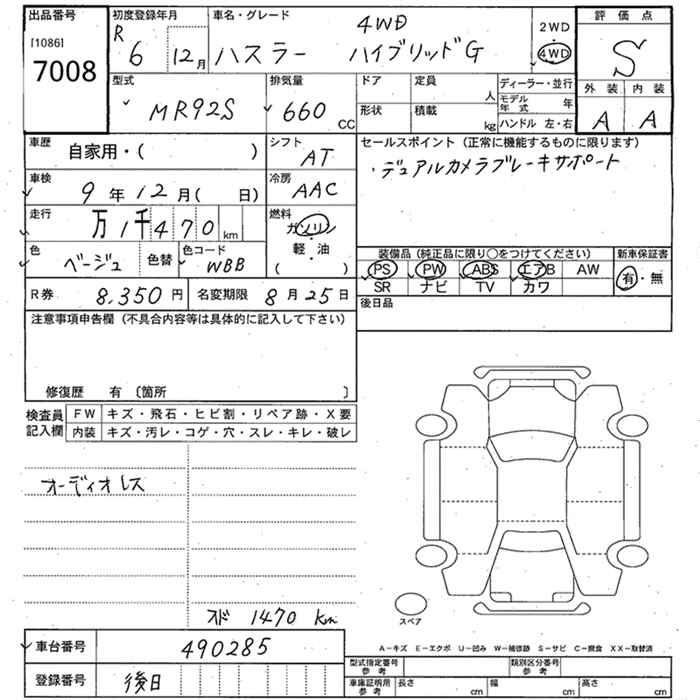 出品番号
[1086]
7008
初度登録年月
R 6 12月
車名・グレード
4WD
ハスラー ハイブリッドG
2WD
4WD
評価点
S
外装 内装
A A
型式
MR92S
排気量
660 CC
ドア
形状
定員 人
積載 kg
ディーラー・並行
モデル年式 年
ハンドル 左・右
車歴
自家用・( )
シフト
AT
車検
9年12月( 日)
冷房
AAC
走行
万1千470 km
燃料
ガソリン
・
軽・油
( )
色
ベージュ
色替
色コード
WBB
R券
8,350円
名変期限
8月25日
セールスポイント(正常に機能するものに限ります)
・デュアルカメラブレーキサポート
装備品(純正品に限り○をつけてください)
PS PW ABS エアB AW
SR ナビ TV カワ
新車保証書
有・無
後日品
注意事項申告欄(不具合内容等は具体的に記入して下さい)
修復歴 有〔箇所 〕
検査員記入欄
FW キズ・飛石・ヒビ割・リペア跡・X要
内装 キズ・汚レ・コゲ・穴・スレ・キレ・破レ
オーディオレス
スド 1470 km
スペア
A-キズ E-エクボ U-凹み W-補修跡 S-サビ C-腐食 XX-取替済
車台番号
490285
登録番号
後日
型式指定番号
参考
類別区分番号
参考
車庫証明用
参考
長さ cm
幅 cm
高さ cm